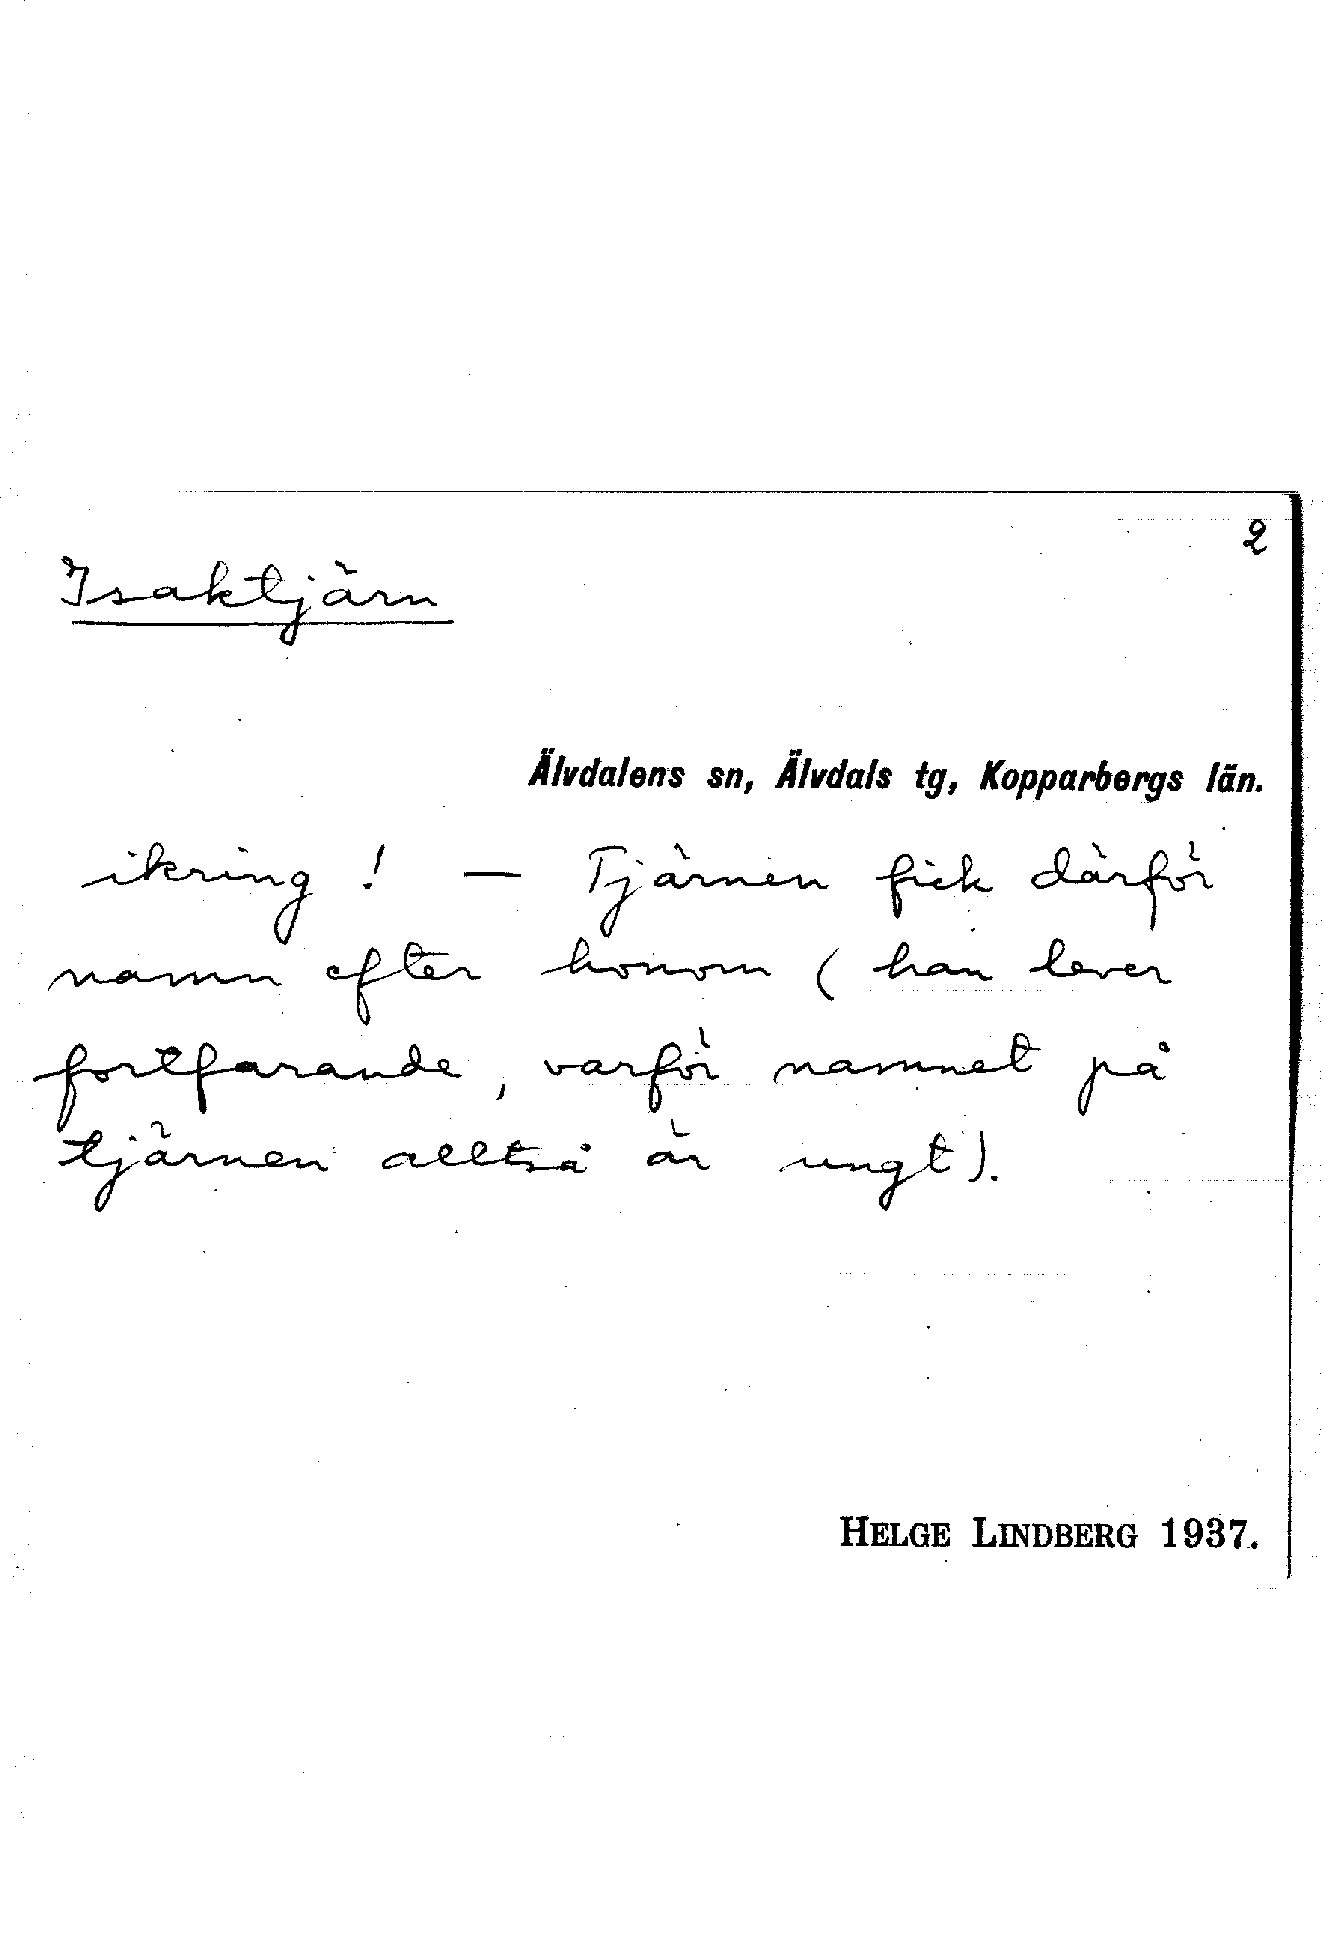 2
Isaktjärn
Älvdalens sn, Älvdals tg, Kopparbergs län.
ikring! — Tjärnen fick därför
namn efter honom (han lever
fortfarande, varför namnet på
tjärnen alltså är ungt).
HELGE LINDBERG 1937.